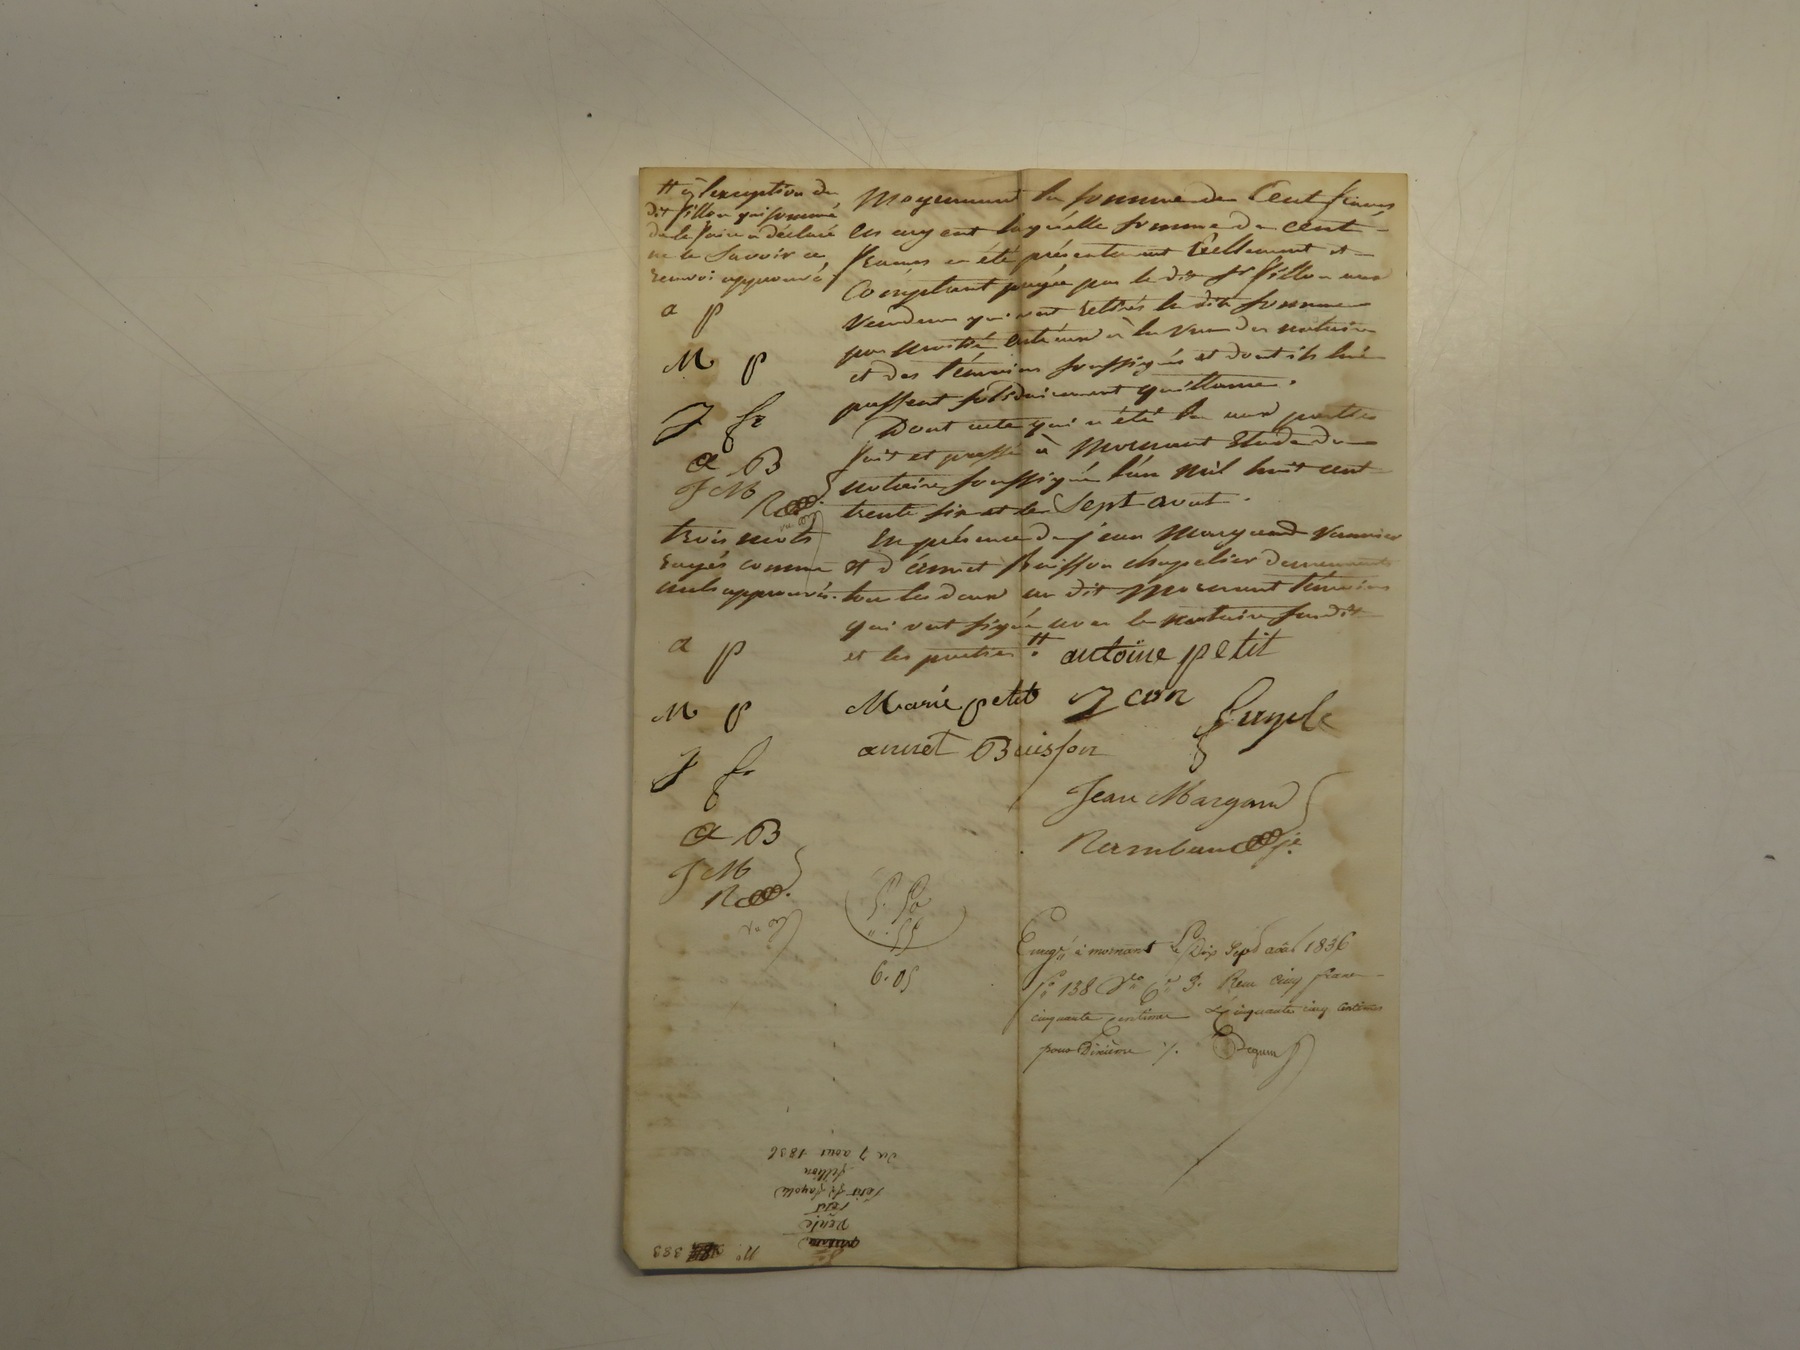 # à l'exception du
dit fillion qui sommé
de le faire a déclaré
ne le Savoir ce
renvoi approuvé
a p
M p
J fe
a B
J M
R
trois mots
rayés comme
nuls approuvés.
a p
M p
J f
a B
J M
R
Moyennant la somme de Cent francs
en argent laquelle somme de cent
francs a été présentement réellement et
Comptant payée par le dit Sr fillion aux
vendeurs qui ont retirés la dite somme
par moitié entre eux à la vue des notaire
et des témoins soussignés et dont ils lui
passent solidairement quittance.
Dont acte qui a été lu aux parties
fait et passé à Mornant Etude du
notaire soussigné l'an mil huit cent
trente six et le Sept aout.
En présence de jean Margand Vannier
et d'annet Buisson chapelier demeurants
tous les deux au dit Mornant témoins
qui ont signé avec le notaire susdit
et les parties # . antoine petit
Marie petit J con fayole
annet Buisson
Jean Margand
Rambaud je
5. 50
" . 55
6. 05
Enregé à mornant le Dix Sept août 1836
fo 138 Vo Ce 3. Reçu cinq francs
cinquante centimes & cinquante cinq centimes
pour Dixième ./.
No 383
Vente
petit
petit fe fayolle
fillion
du 7 aout 1836